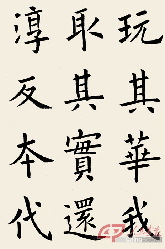 玩其華我
取其實還
淳反本代